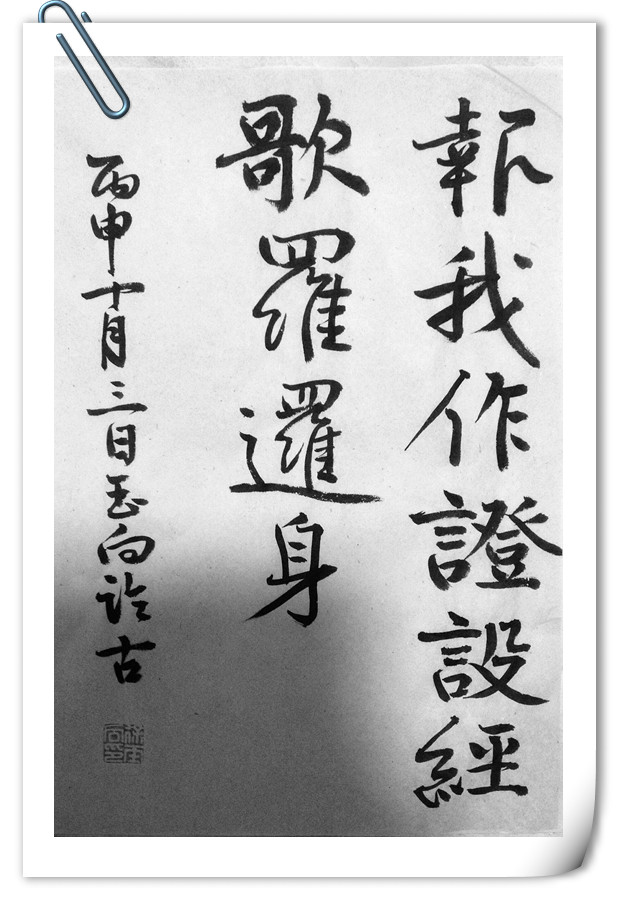 報我作證設經
歌羅邏身
丙申十月三日玉向詮古